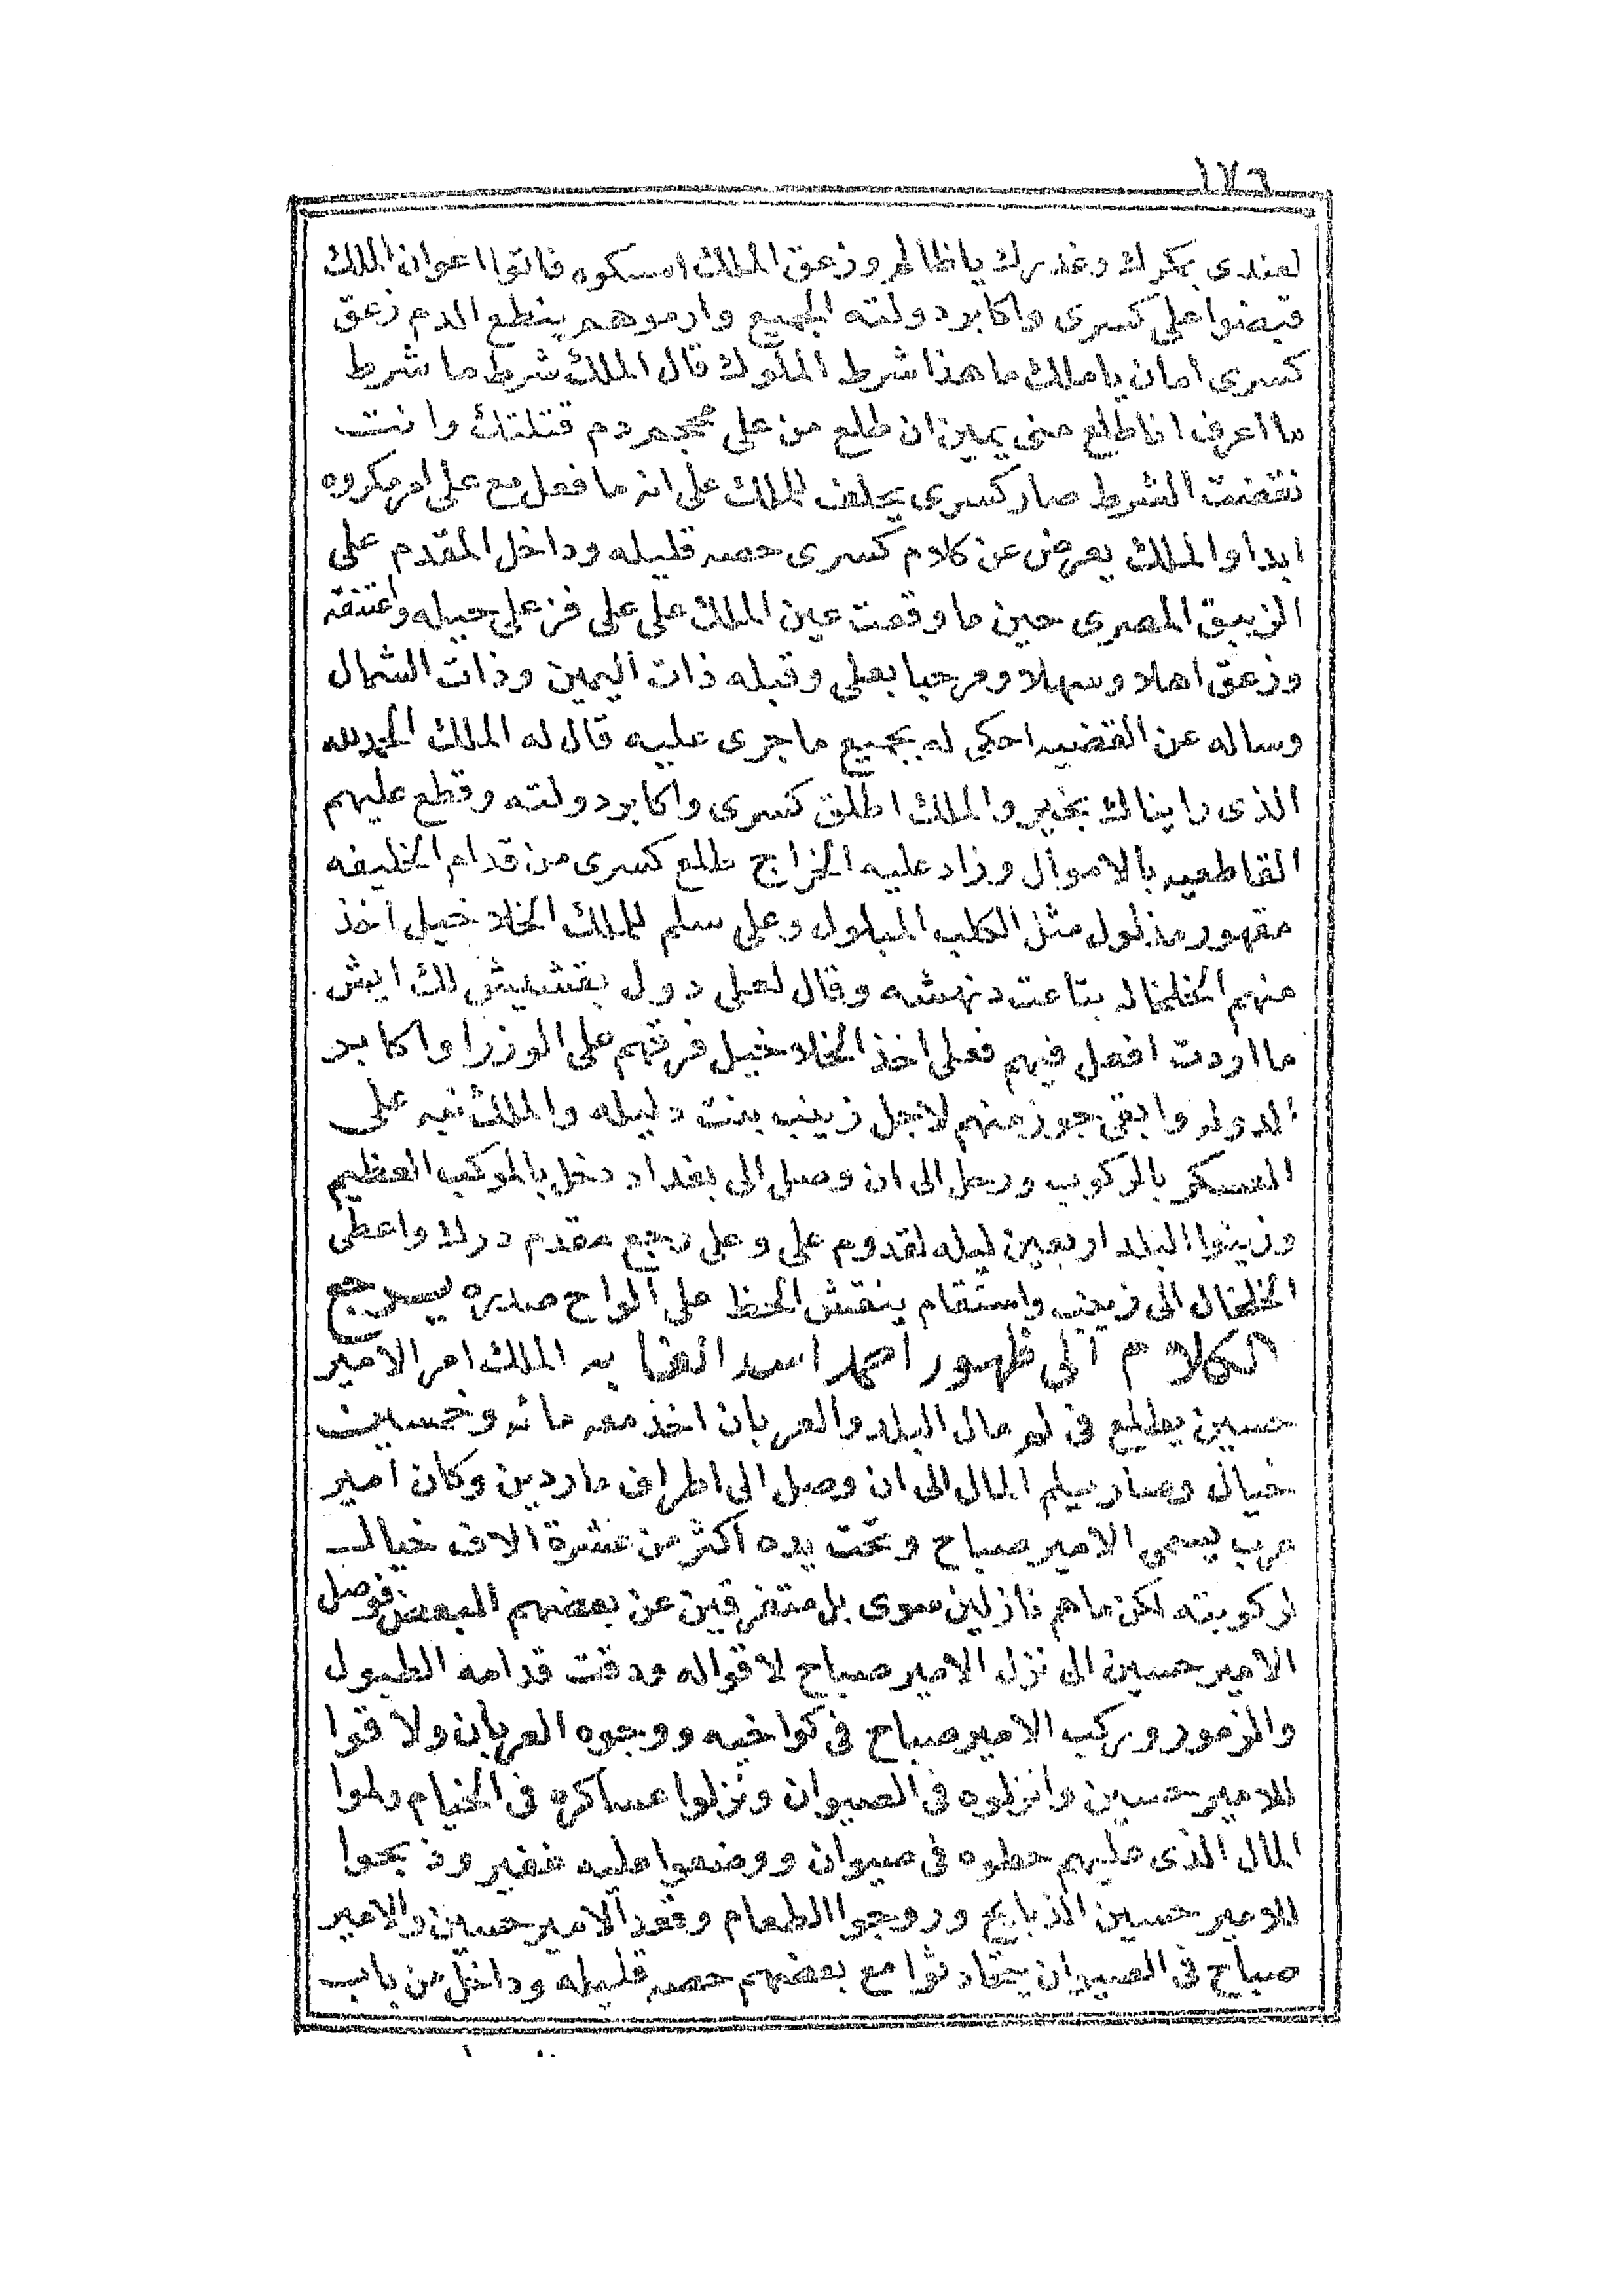 ١٧٦
لعندى بمكرك وغدرك يا ظالم وزعق الملك امسكوه فاتوا اعوان الملك
قبضوا على كسرى واكابر دولته الجميع وارموهم بنطع الدم زعق
كسرى امان يا ملك ما هذا شرط الملوك قال الملك شرط ما شرط
ما اعرف انا طلع منى يمين ان طلع من على محجم دم قتلتك وانت
نقضت الشرط صار كسرى يحلف للملك على انه ما فعل مع على امر مكروه
ابدا والملك يعرض عن كلام كسرى حصه قليله وداخل المقدم على
الزيبق المصرى حين ما وقعت عين الملك على على فز على حيله واعتنقه
وزعق اهلا وسهلا ومرحبا بعلى وقبله ذات اليمين وذات الشمال
وساله عن القضيه احكى له بجميع ما جرى عليه قال له الملك الحمدلله
الذى رايناك بخير والملك اطلق كسرى واكابر دولته وقطع عليهم
القاطعيه بالاموال وزاد عليه الخراج طلع كسرى من قدام الخليفه
مقهور مذلول مثل الكلب المبلول وعلى سلم للملك الخلاخيل اخذ
منهم الخلخال بتاعت دنهشه وقال لعلى دول بقشيش لك ايش
ما اردت افعل فيهم فعلى اخذ الخلاخيل فرقهم على الوزرا واكابر
الدوله وابقى جوز منهم لاجل زينب بنت دليله والملك نبه على
العسكر بالركوب ورحل الى ان وصل الى بغداد دخل بالموكب العظيم
وزينوا البلد اربعين ليله لقدوم على وعلى رجع مقدم درك واعطى
الخلخال الى زينب واستقام ينقش الحظ على الواح صدره يرجع
الكلام الى ظهور احمد اسد الغابه الملك امر الامير
حسين يطلع فى لم مال البلد والعربان اخذ معه مائه وخمسين
خيال وصار يلم المال الى ان وصل الى اطراف ماردين وكان امير
عرب يسمى الامير صباح وتحت يده اكثر من عشرة الاف خيال
لركوبته لكن ما هم نازلين سوى بل متفرقين عن بعضهم البعض فوصل
الامير حسين الى نزل الامير صباح لاقواله ودقت قدامه الطبول
والزمور وركب الامير صباح فى كواخيه ووجوه العربان ولاقوا
للامير حسين وانزلوه فى الصيوان ونزلوا عساكره فى الخيام ولموا
المال الذى عليهم حطوه فى صيوان ووضعوا عليه غفير وذبحوا
للامير حسين الذبايح وروجوا الطعام وقعد الامير حسين والامير
صباح فى الصيوان يتحادثوا مع بعضهم حصه قليله وداخل من باب